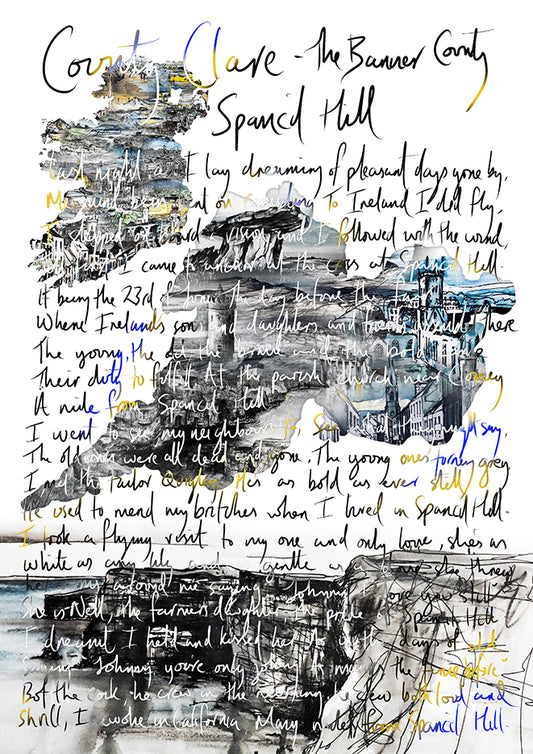 County Clare - The Banner County
Spancil Hill
Last night as I lay dreaming of pleasant days gone by,
My mind being bent on rambling To Ireland I did fly,
I stepped on board a vision and I followed with the wind,
I came to anchor at the cross at Spancil Hill.
It being the 23rd of June The day before the fair
Where Irelands sons and daughters and friends there
The young, the old the brave and the bold
Their duty to fulfill. At the parish church near Clooney
A mile from Spancil Hill
I went to see my neighbours to see what they might say,
The old ones were all dead and gone, The young ones turning grey
I met the tailor Quigley, He's as bold as ever still
He used to mend my britches when I lived in Spancil Hill.
I took a flying visit to my one and only love, she's as
white as any lily and gentle as a dove she threw
her arms around me saying Johnny I love you still
She is Nell, the farmers daughter, the pride of Spancil Hill
I dreamt I held and kissed her as in the days of old
Johnny you're only joking as many's the time before
But the cock he crew in the morning he crew both loud and
shrill, I woke in California, Many miles from Spancil Hill.